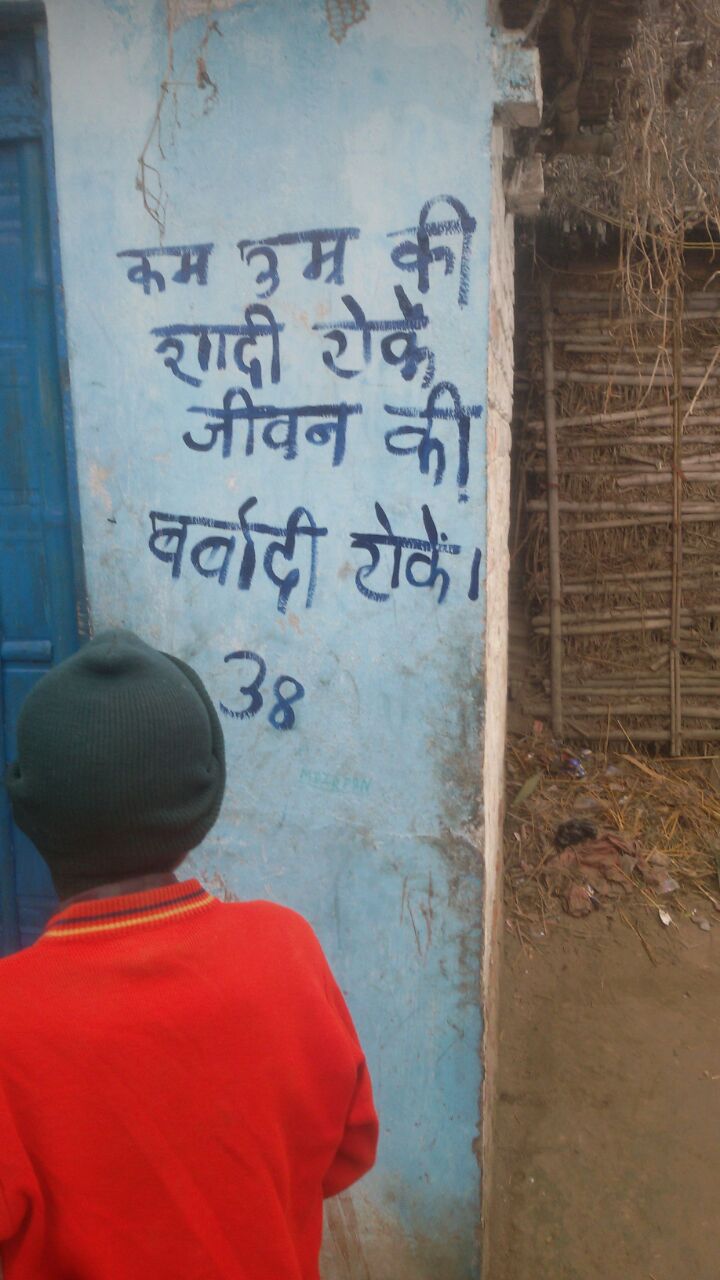 कम उम्र की
शादी रोकें
जीवन की
बर्वादी रोकें।
38